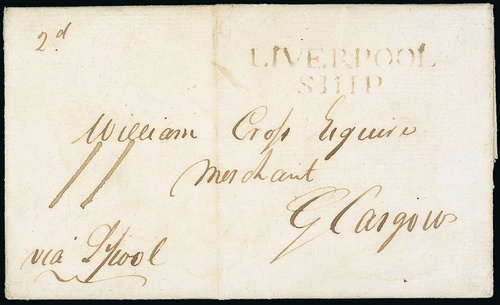 2d
LIVERPOOL
SHIP
William Croſs Esquire
11
Merchant
Glasgow
via L'pool